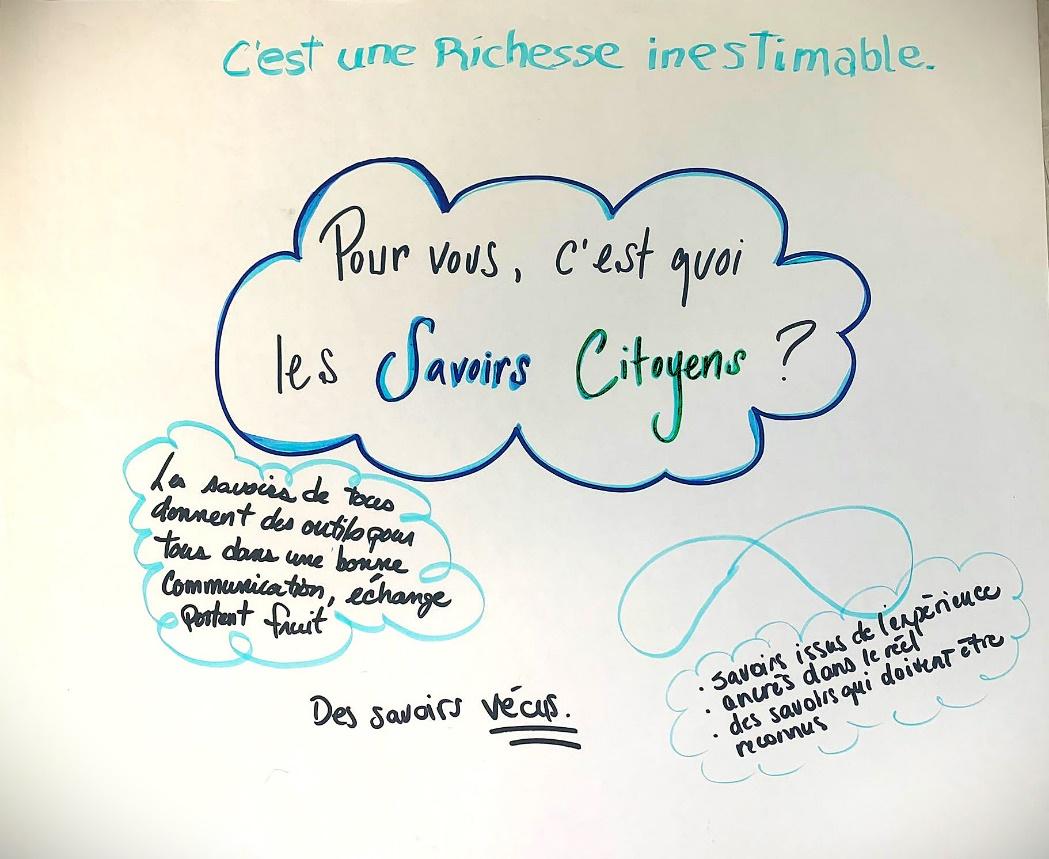 C'est une Richesse inestimable.
Pour vous, c'est quoi
les Savoirs Citoyens ?
Les savoirs de tous
donnent des outils pour
tous dans une bonne
communication, échange
portent fruit
Des savoirs vécus.
• savoirs issus de l'expérience
• ancrés dans le réel
• des savoirs qui doivent être
reconnus